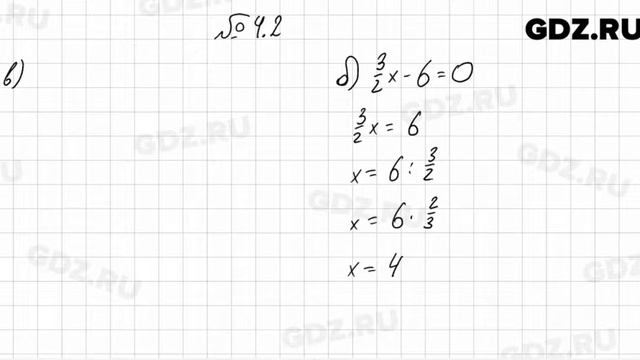 № 4.2
GDZ.RU
в)
б) 3/2 x - 6 = 0
3/2 x = 6
x = 6 : 3/2
x = 6 · 2/3
x = 4
GDZ.RU
GDZ.RU
GDZ.RU
GDZ.RU
GDZ.RU
GDZ.RU
GDZ.RU
GDZ.RU